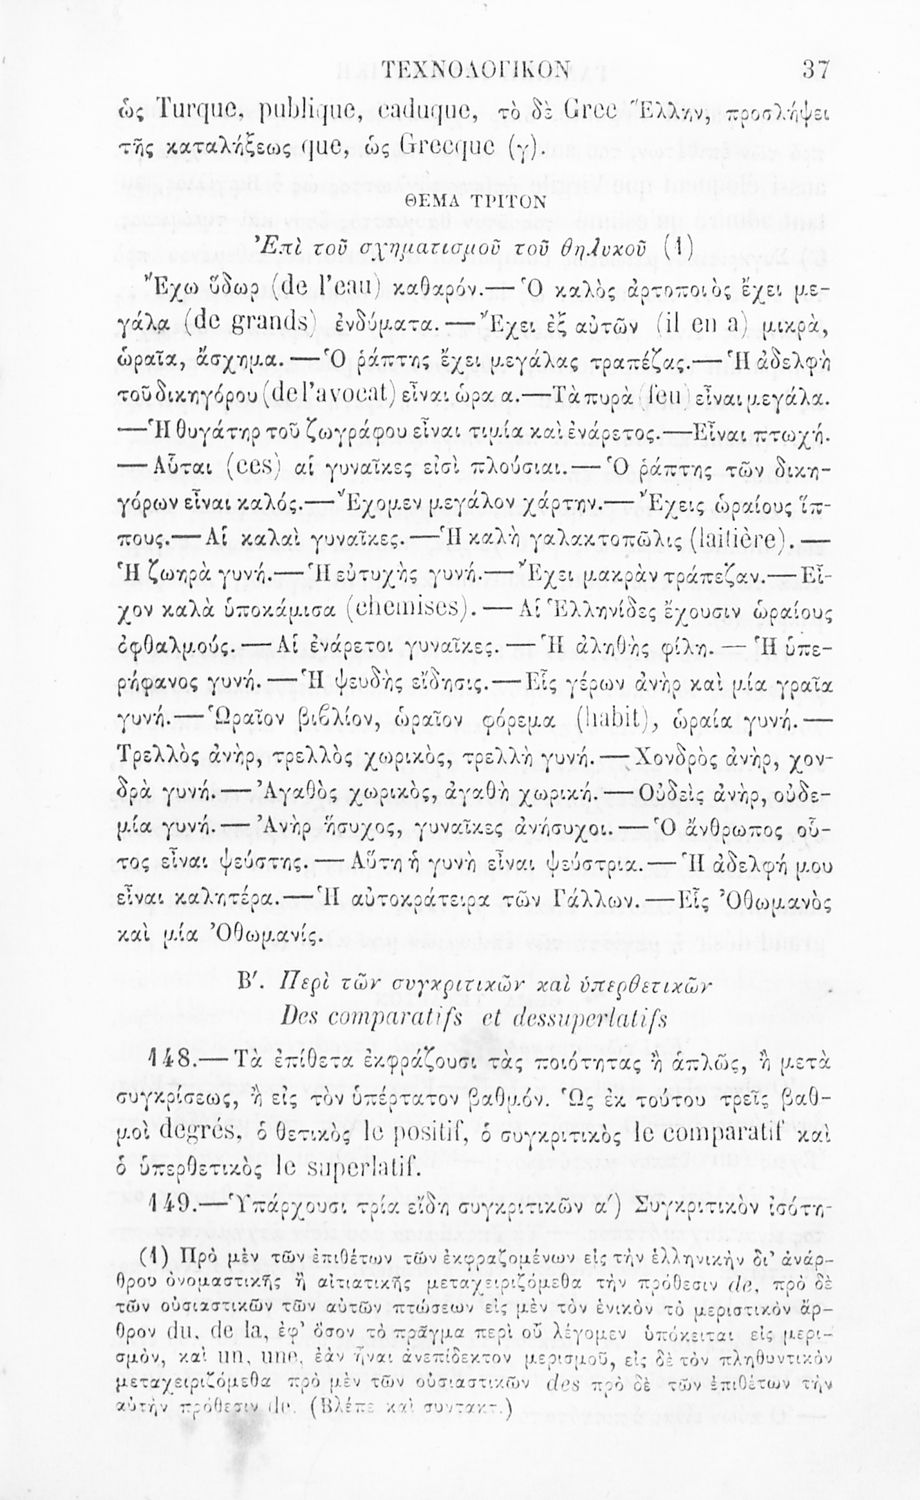 ΤΕΧΝΟΛΟΓΙΚΟΝ 37
ὡς Turque, publique, caduque, τὸ δὲ Grec Ἕλλην, προσλήψει
τῆς καταλήξεως que, ὡς Grecque (γ).
ΘΕΜΑ ΤΡΙΤΟΝ
Ἐπὶ τοῦ σχηματισμοῦ τοῦ θηλυκοῦ (1)
Ἔχω ὕδωρ (de l'eau) καθαρόν.—Ὁ καλὸς ἀρτοποιὸς ἔχει με-
γάλα (de grands) ἐνδύματα.—Ἔχει ἐξ αὐτῶν (il en a) μικρὰ,
ὡραῖα, ἄσχημα.—Ὁ ῥάπτης ἔχει μεγάλας τραπέζας.—Ἡ ἀδελφὴ
τοῦ δικηγόρου (de l'avocat) εἶναι ὡρα α.—Τὰ πυρὰ (feu) εἶναι μεγάλα.
—Ἡ θυγάτηρ τοῦ ζωγράφου εἶναι τιμία καὶ ἐνάρετος.—Εἶναι πτωχή.
—Αὗται (ces) αἱ γυναῖκες εἰσὶ πλούσιαι.—Ὁ ῥάπτης τῶν δικη-
γόρων εἶναι καλός.—Ἔχομεν μεγάλον χάρτην.—Ἔχεις ὡραίους ἵπ-
πους.—Αἱ καλαὶ γυναῖκες.—Ἡ καλὴ γαλακτοπῶλις (laitière).—
Ἡ ζωηρὰ γυνή.—Ἡ εὐτυχὴς γυνή.—Ἔχει μακρὰν τράπεζαν.—Εἶ-
χον καλὰ ὑποκάμισα (chemises).—Αἱ Ἑλληνίδες ἔχουσιν ὡραίους
ὀφθαλμούς.—Αἱ ἐνάρετοι γυναῖκες.—Ἡ ἀληθὴς φίλη.—Ἡ ὑπε-
ρήφανος γυνή.—Ἡ ψευδὴς εἴδησις.—Εἷς γέρων ἀνὴρ καὶ μία γραῖα
γυνή.—Ὡραῖον βιβλίον, ὡραῖον φόρεμα (habit), ὡραία γυνή.—
Τρελλὸς ἀνὴρ, τρελλὸς χωρικὸς, τρελλὴ γυνή.—Χονδρὸς ἀνὴρ, χον-
δρὰ γυνή.—Ἀγαθὸς χωρικὸς, ἀγαθὴ χωρική.—Οὐδεὶς ἀνὴρ, οὐδε-
μία γυνή.—Ἀνὴρ ἥσυχος, γυναῖκες ἀνήσυχοι.—Ὁ ἄνθρωπος οὗ-
τος εἶναι ψεύστης.—Αὕτη ἡ γυνὴ εἶναι ψεύστρια.—Ἡ ἀδελφή μου
εἶναι καλητέρα.—Ἡ αὐτοκράτειρα τῶν Γάλλων.—Εἷς Ὀθωμανὸς
καὶ μία Ὀθωμανίς.
Β'. Περὶ τῶν συγκριτικῶν καὶ ὑπερθετικῶν
Des comparatifs et dessuperlatifs
148.—Τὰ ἐπίθετα ἐκφράζουσι τὰς ποιότητας ἢ ἁπλῶς, ἢ μετὰ
συγκρίσεως, ἢ εἰς τὸν ὑπέρτατον βαθμόν. Ὡς ἐκ τούτου τρεῖς βαθ-
μοὶ degrés, ὁ θετικὸς le positif, ὁ συγκριτικὸς le comparatif καὶ
ὁ ὑπερθετικὸς le superlatif.
149.—Ὑπάρχουσι τρία εἴδη συγκριτικῶν α') Συγκριτικὸν ἰσότη-
(1) Πρὸ μὲν τῶν ἐπιθέτων τῶν ἐκφραζομένων εἰς τὴν ἑλληνικὴν δι' ἀνάρ-
θρου ὀνομαστικῆς ἢ αἰτιατικῆς μεταχειριζόμεθα τὴν πρόθεσιν de, πρὸ δὲ
τῶν οὐσιαστικῶν τῶν αὐτῶν πτώσεων εἰς μὲν τὸν ἑνικὸν τὸ μεριστικὸν ἄρ-
θρον du, de la, ἐφ' ὅσον τὸ πρᾶγμα περὶ οὗ λέγομεν ὑπόκειται εἰς μερι-
σμὸν, καὶ un, une, ἐὰν ἦναι ἀνεπίδεκτον μερισμοῦ, εἰς δὲ τὸν πληθυντικὸν
μεταχειριζόμεθα πρὸ μὲν τῶν οὐσιαστικῶν des πρὸ δὲ τῶν ἐπιθέτων τὴν
αὐτὴν πρόθεσιν de. (Βλέπε καὶ συντακτ.)